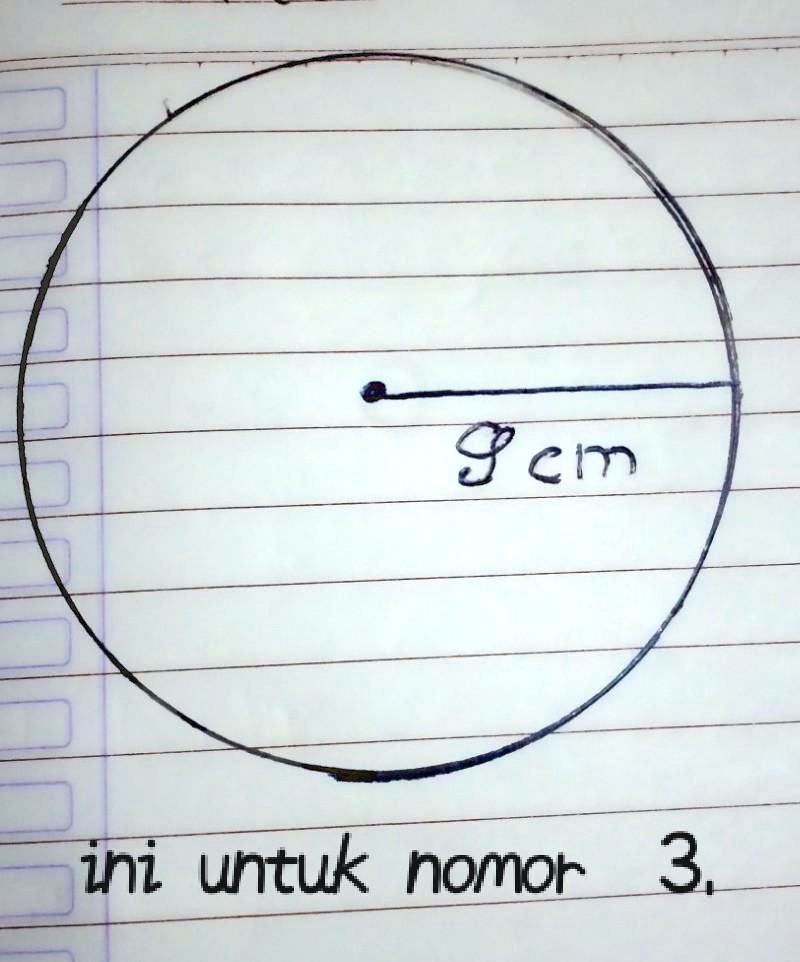 9 cm
ini untuk nomor 3.